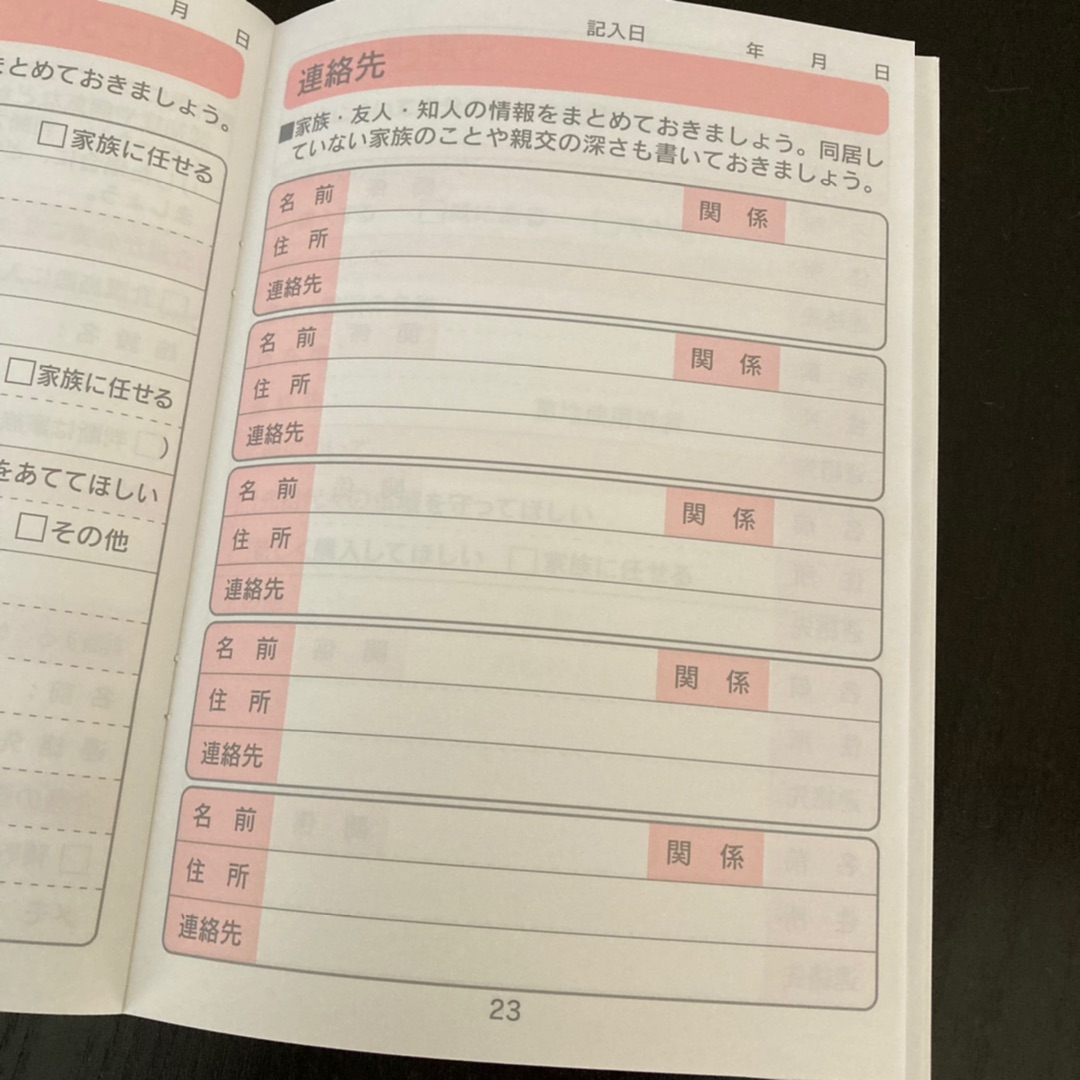 月 日
まとめておきましょう。
□家族に任せる
□家族に任せる
）
をあててほしい
□その他
記入日 年 月 日
連絡先
■家族・友人・知人の情報をまとめておきましょう。同居し
ていない家族のことや親交の深さも書いておきましょう。
名 前 関 係
住 所
連絡先
名 前 関 係
住 所
連絡先
名 前 関 係
住 所
連絡先
名 前 関 係
住 所
連絡先
名 前 関 係
住 所
連絡先
23